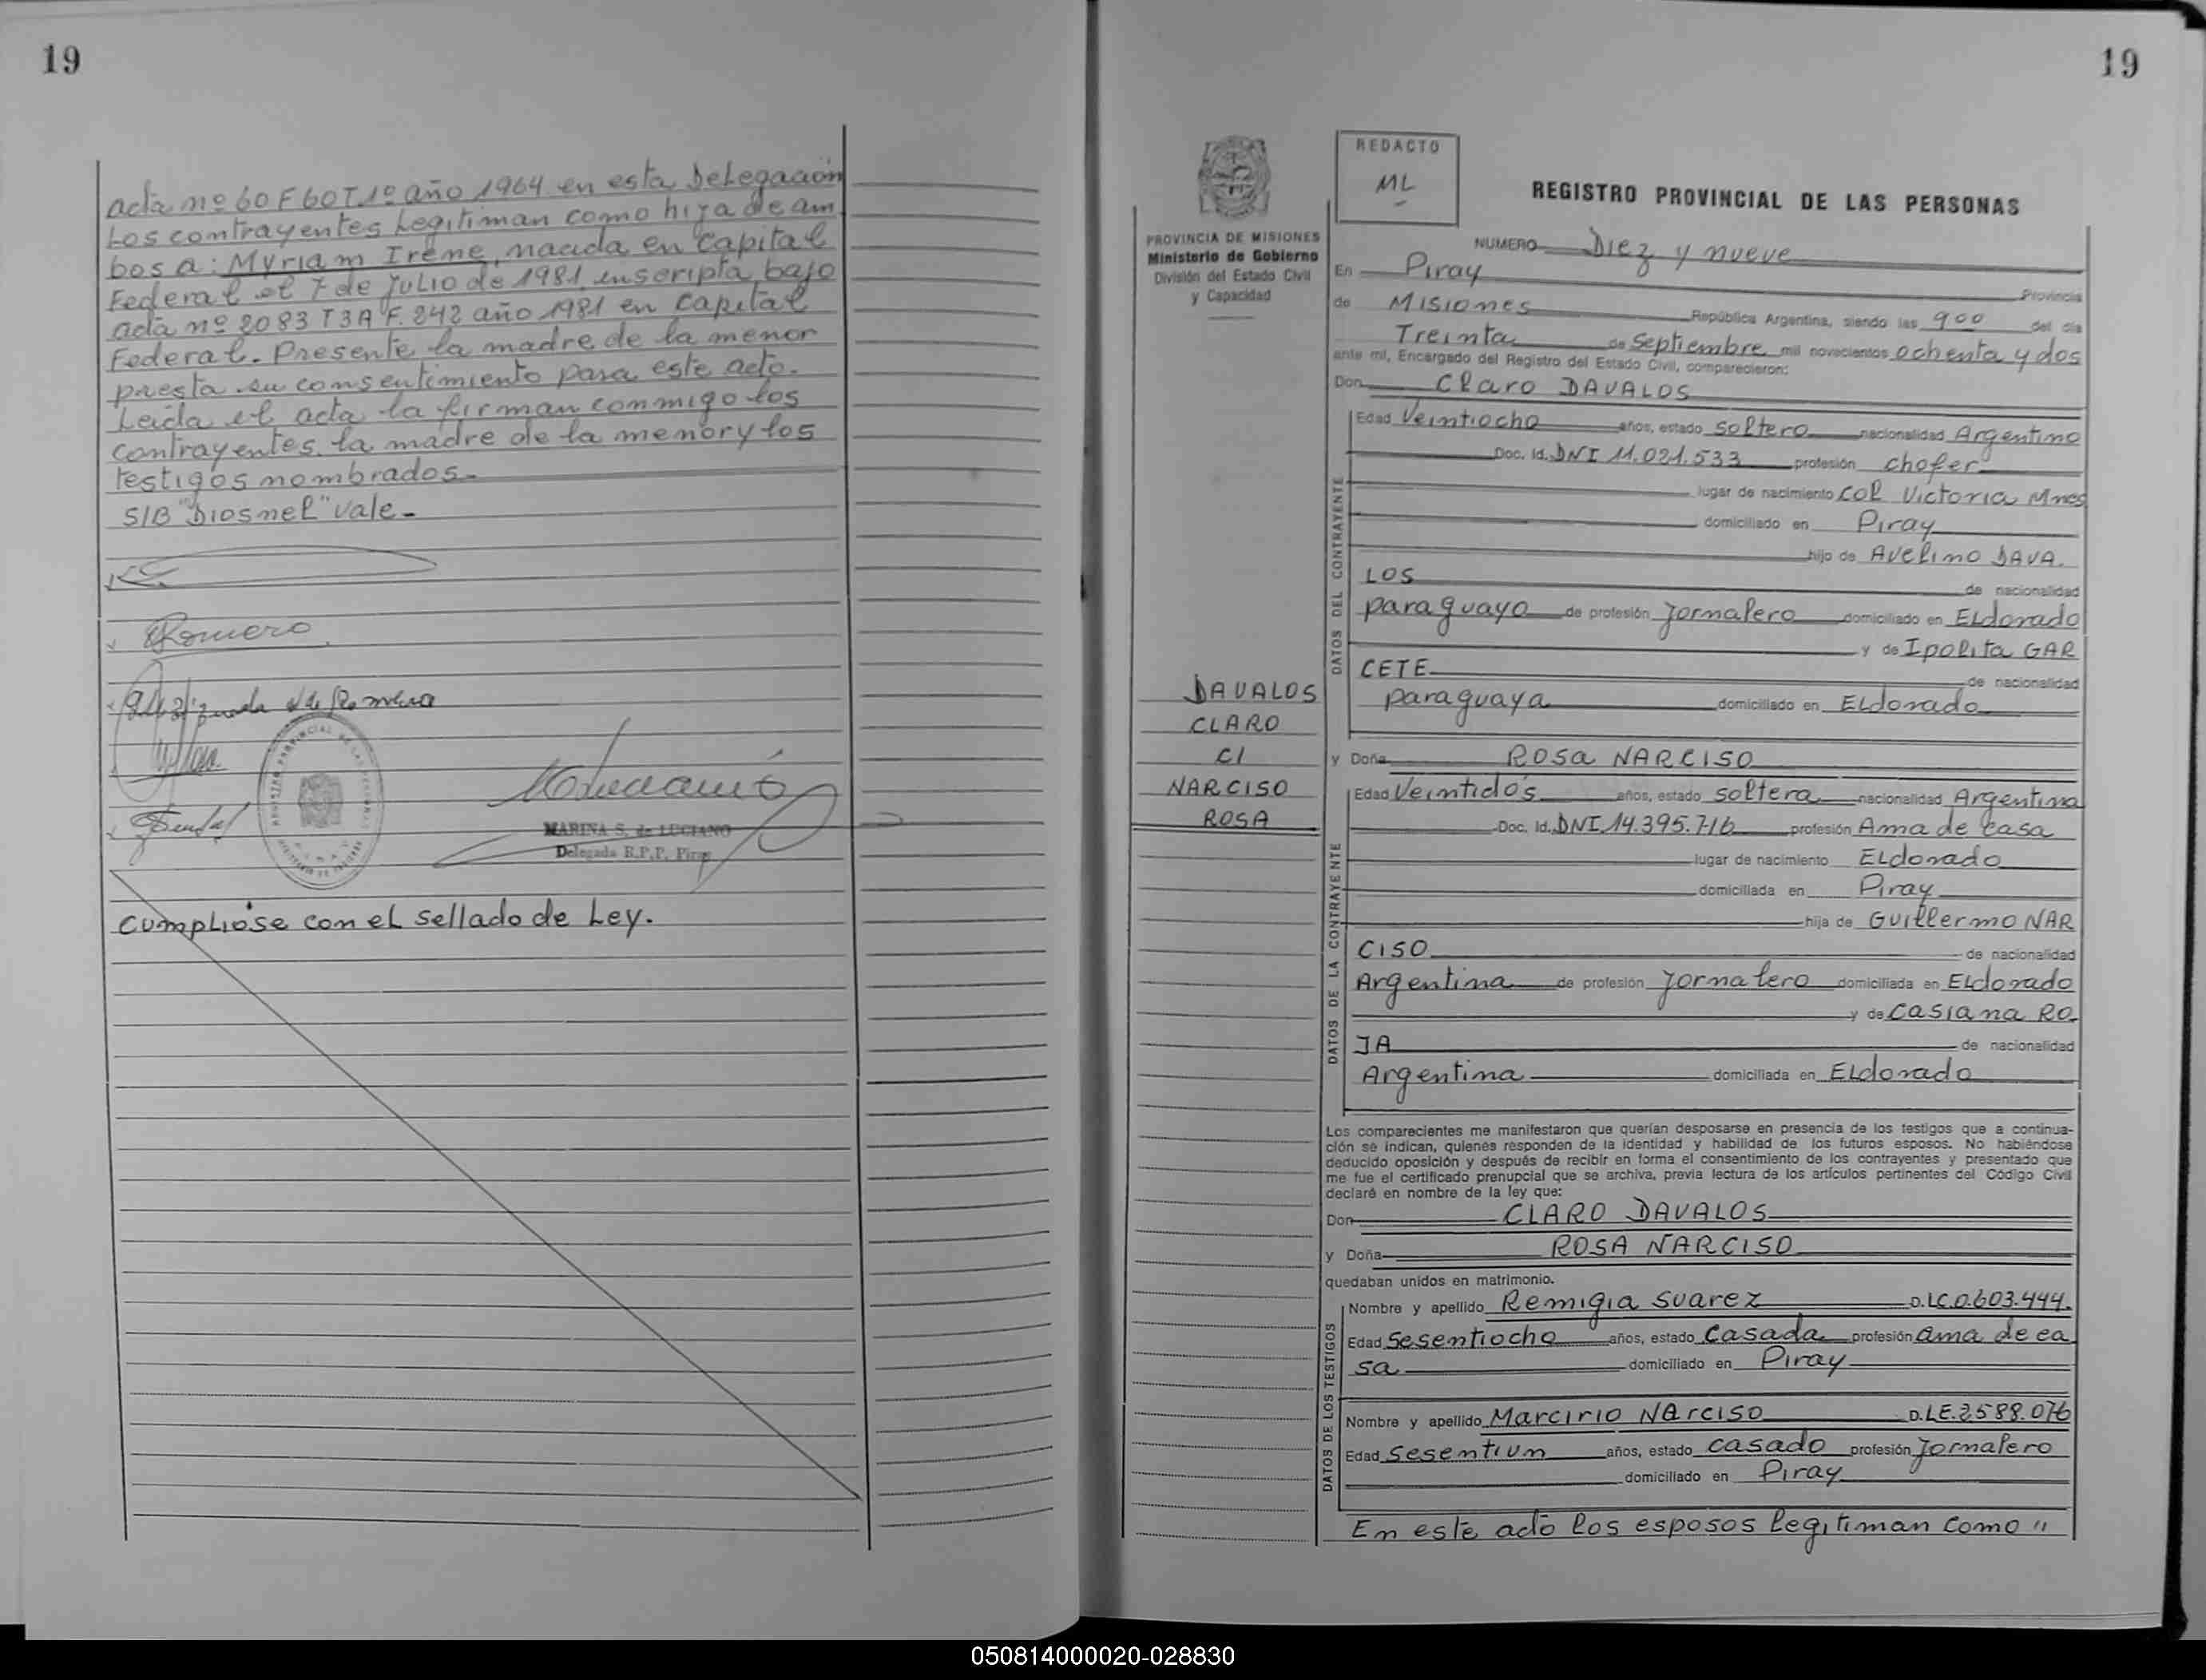 19
acta nº 60 F 60 T 1º año 1964 en esta Delegación
Los contrayentes Legitiman como hija de am
bos a: Myriam Irene, nacida en Capital
Federal el 7 de Julio de 1981 inscripta bajo
acta nº 2083 T 3A F. 242 año 1981 en Capital
Federal. Presente la madre de la menor
presta su consentimiento para este acto.
Leída el acta la firman conmigo los
contrayentes, la madre de la menor y los
testigos nombrados.
S/B "Diosnel" vale.
Romero
de Romero
MARINA S. de LUCIANO
Delegada R.P.P. Piray
Cumplióse con el sellado de Ley.
19
PROVINCIA DE MISIONES
Ministerio de Gobierno
División del Estado Civil
y Capacidad
DAVALOS
CLARO
C/
NARCISO
ROSA
REDACTO
ML
REGISTRO PROVINCIAL DE LAS PERSONAS
NUMERO Diez y nueve
En Piray Provincia
de Misiones República Argentina, siendo las 900 del día
Treinta de Septiembre mil novecientos ochenta y dos
ante mí, Encargado del Registro del Estado Civil, comparecieron:
Don Claro DAVALOS
DATOS DEL CONTRAYENTE
Edad Veintiocho años, estado soltero nacionalidad Argentino
Doc. Id. DNI 11.021.533 profesión chofer
lugar de nacimiento Col Victoria Mnes
domiciliado en Piray
hijo de Avelino DAVA.
LOS de nacionalidad
paraguayo de profesión Jornalero domiciliado en Eldorado
y de Ipolita GAR
CETE de nacionalidad
paraguaya domiciliado en Eldorado
y Doña Rosa NARCISO
DATOS DE LA CONTRAYENTE
Edad Veintidós años, estado soltera nacionalidad Argentina
Doc. Id. DNI 14.395.716 profesión Ama de casa
lugar de nacimiento Eldorado
domiciliada en Piray
hija de Guillermo NAR
CISO de nacionalidad
Argentina de profesión Jornalero domiciliada en Eldorado
y de Casiana RO
JA de nacionalidad
Argentina domiciliada en Eldorado
Los comparecientes me manifestaron que querían desposarse en presencia de los testigos que a continua-
ción se indican, quienes responden de la identidad y habilidad de los futuros esposos. No habiéndose
deducido oposición y después de recibir en forma el consentimiento de los contrayentes y presentado que
me fue el certificado prenupcial que se archiva, previa lectura de los artículos pertinentes del Código Civil
declaré en nombre de la ley que:
Don CLARO DAVALOS
y Doña ROSA NARCISO
quedaban unidos en matrimonio.
DATOS DE LOS TESTIGOS
Nombre y apellido Remigia Suarez D.LC.0.603.444.
Edad Sesentiocho años, estado Casada profesión ama de ca
sa domiciliado en Piray
Nombre y apellido Marcirio Narciso D.LE.2588.076
Edad Sesentiun años, estado casado profesión Jornalero
domiciliado en Piray
En este acto los esposos legitiman como "
050814000020-028830